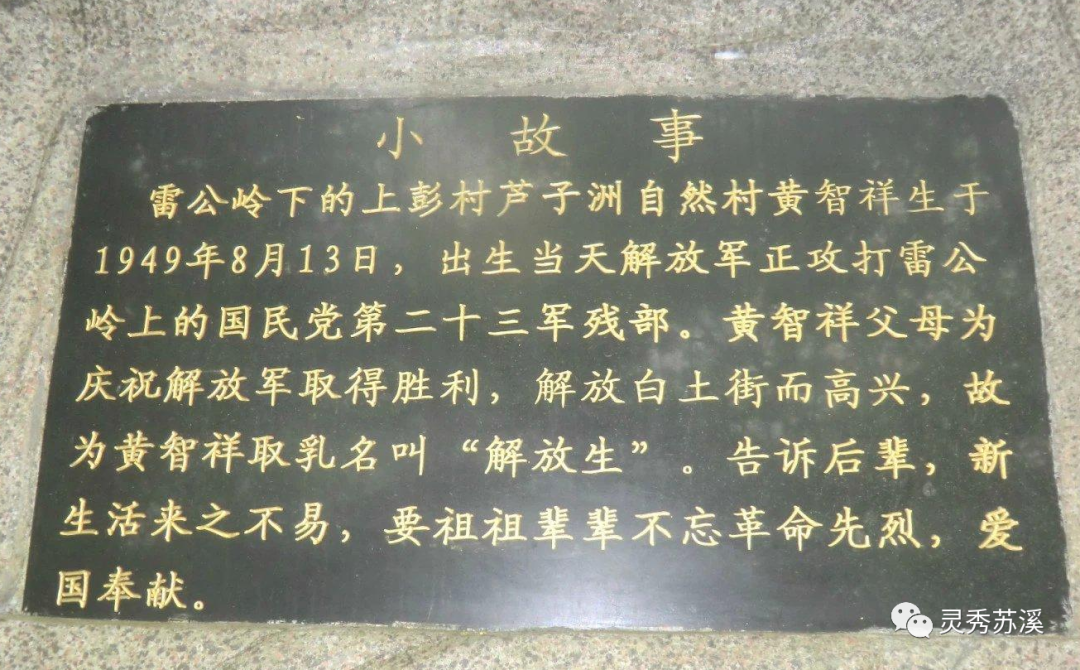 小故事
雷公岭下的上彭村芦子洲自然村黄智祥生于
1949年8月13日，出生当天解放军正攻打雷公
岭上的国民党第二十三军残部。黄智祥父母为
庆祝解放军取得胜利，解放白土街而高兴，故
为黄智祥取乳名叫“解放生”。告诉后辈，新
生活来之不易，要祖祖辈辈不忘革命先烈，爱
国奉献。
灵秀苏溪